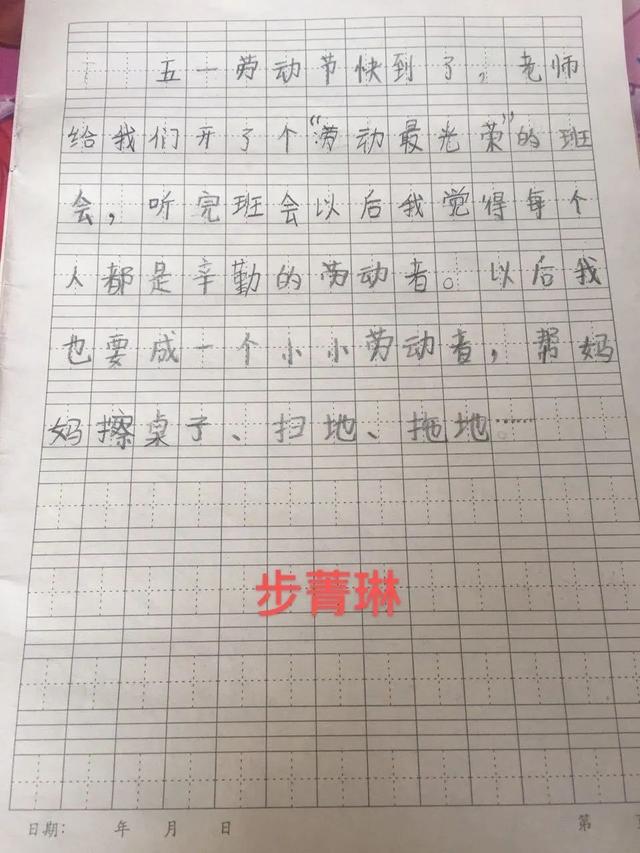 五一劳动节快到了，老师
给我们开了个“劳动最光荣”的班
会，听完班会以后我觉得每个
人都是辛勤的劳动者。以后我
也要成一个小小劳动者，帮妈
妈擦桌子、扫地、拖地……
步菁琳
日期： 年 月 日 第 页